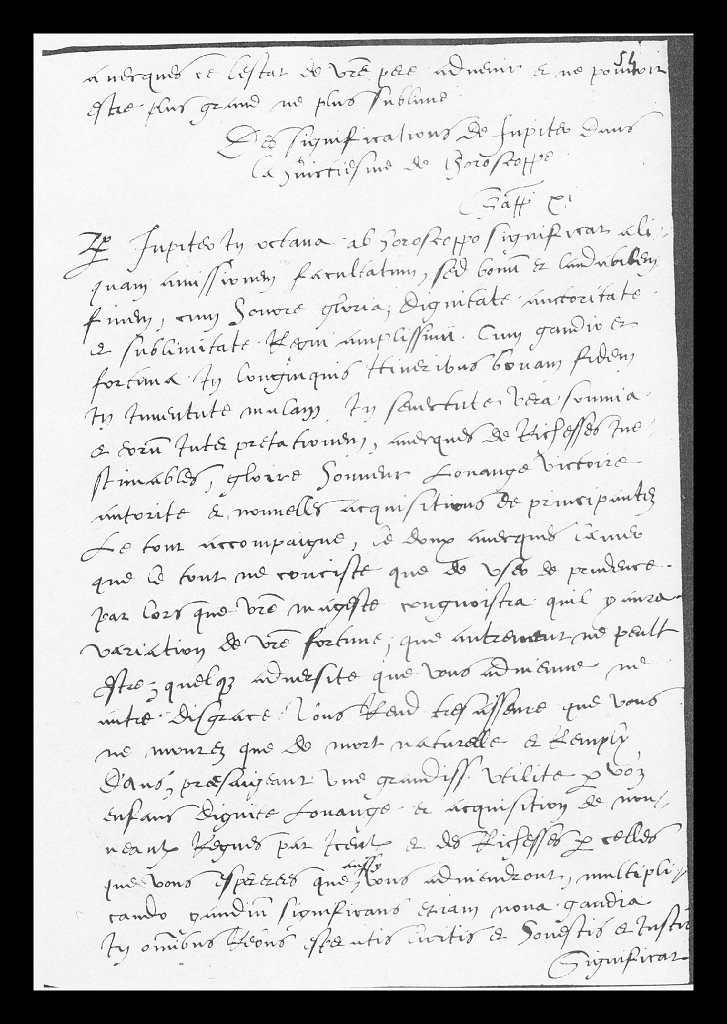 54
avecques ce lestat de vre pere advenir et ne pouvoir
estre plus grand ne plus sublime
Des significations de Jupiter dans
la huictiesme de horoscoppe
Chapp xi
Jupiter in octava ab horoscoppo significat ali
quam amissionem facultatum, sed bonum et laudabilem
finem, cum honore gloria, dignitate auctoritate
et sublimitate Regni amplissimi. Cum gaudio et
fortuna In longinquis Itineribus bonam fidem
In Juventute malam, In senectute vera somnia
et eorum Interpretationem, avecques de Richesses Ine
stimables, gloire honneur Louange victoire
autorite et nouvelles acquisitions de principautez
Le tout accompaigne, le doux avecques lamer
que le tout ne conciste que de user de prudence
par lors que vre mageste congnoistra quil y aura
variation de vre fortune, que autrement ne peult
Estre, quelque adversite que vous advienne ne
autre disgrace. Vous Rend tresasseure que vous
ne mourez que de mort naturelle et Remply
D'ans, præsaigeant une grandiss. utilite p voz
enfans dignite Louange et acquisition de nou
veaulx Regnes par Iceulx et des Richesses p celles
que vous espereres que aussy vous adviendront, multipli
cando gaudium significans etiam nova gaudia
In omnibus Rebus speratis licitis et honestis et Justis
Significat